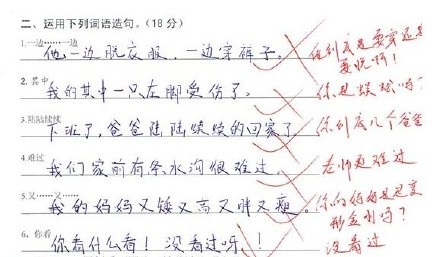 二、运用下列词语造句。(18分)
1.一边……一边
他一边脱衣服，一边穿裤子。
他到底是要穿还是要脱啊！
2.其中
我的其中一只左脚受伤了。
你是蜈蚣吗？
3.陆陆续续
下班了，爸爸陆陆续续的回家了
你到底几个爸爸
4.难过
我们家前有条水沟很难过。
老师更难过
5.又……又……
我的妈妈又矮又高又胖又瘦。
你的妈妈是变形金刚吗？
6.你看
你看什么看！没看过呀！！
没看过